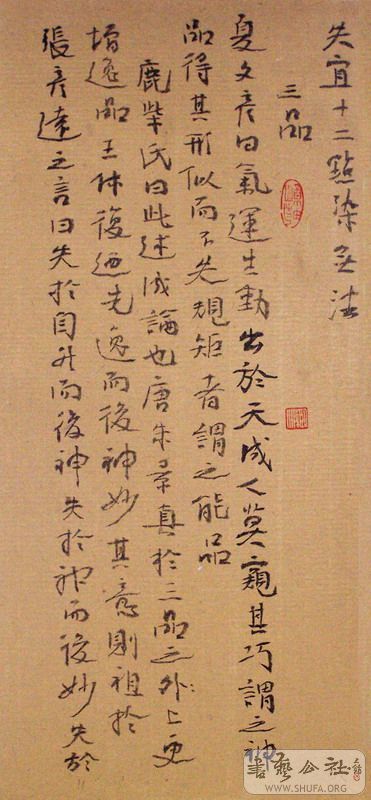 失宜十二點染無法
三品
夏文彥曰氣運生動出於天成人莫窺其巧謂之神
品得其形似而不失規矩者謂之能品
鹿柴氏曰此述成論也唐朱景真於三品之外上更
增逸品王休復迺先逸而後神妙其意則祖於
張彥遠之言曰失於自然而後神失於神而後妙失於
書藝公社
WWW.SHUFA.ORG